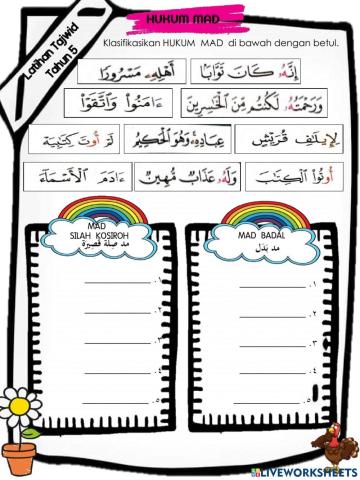 HUKUM MAD
Latihan Tajwid
Tahun 5
Klasifikasikan HUKUM MAD di bawah dengan betul.
إِنَّهُۥ كَانَ تَوَّابًۢا
أَهْلِهِۦ مَسْرُورًا
وَرَحْمَتُهُۥ لَكُنتُم مِّنَ ٱلْخَٰسِرِينَ
ءَامَنُوا۟ وَٱتَّقَوْا۟
لِإِيلَٰفِ قُرَيْشٍ
عِبَادِهِۦ وَهُوَ ٱلْحَكِيمُ
لَمْ أُوتَ كِتَٰبِيَهْ
أُوتُوا۟ ٱلْكِتَٰبَ
وَلَهُۥ عَذَابٌ مُّهِينٌ
ءَادَمَ ٱلْأَسْمَآءَ
MAD
SILAH KOSIROH
مد صلة قصيرة
١.
٢.
٣.
٤.
٥.
MAD BADAL
مد بدل
١.
٢.
٣.
٤.
٥.
LIVEWORKSHEETS